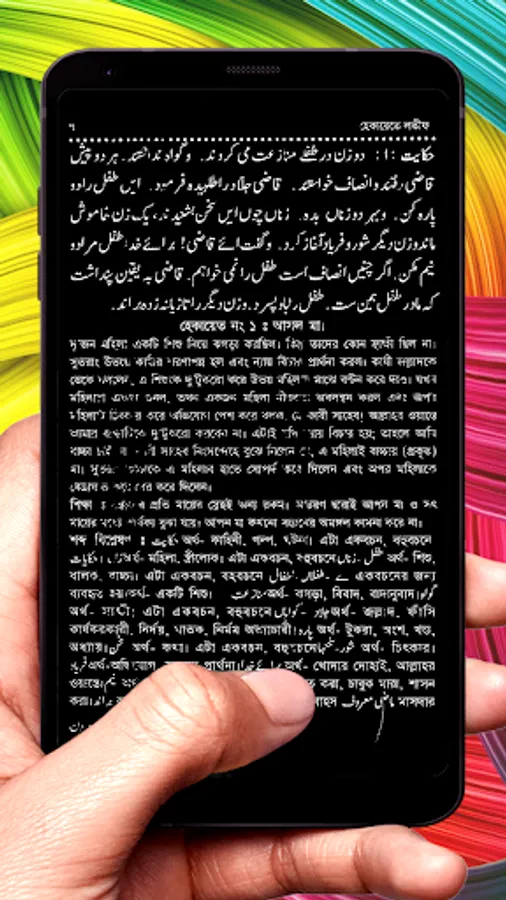 ۲ হেকায়েতে লতীফ
حکایت :1: دو زن در طفلے منازعت می کردند۔ و گواہ نداشتند۔ ہر دو پیش
قاضی رفتند و انصاف خواستند۔ قاضی جلاد را طلبیدہ و فرمود۔ ایں طفل را دو
پارہ کن۔ و بہر دو زناں بدہ۔ زناں چوں ایں سخن بشنیدند، یک زن خاموش
ماند و زن دیگر شور و فریاد آغاز کرد۔ و گفت اے قاضی! برائے خدا طفل مرا دو
نیم مکن، اگر چنیں انصاف است طفل را نمی خواہم۔ قاضی بہ یقین پنداشت
کہ مادر طفل ہمین ست۔ طفل را باو سپرد۔ و زن دیگر را تازیانہ زدہ براند۔
হেকায়েত নং ১ ঃ আসল মা।
দু'জন মহিলা একটি শিশু নিয়ে ঝগড়া করছিল। কিন্তু তাদের কোন সাক্ষী ছিল না।
সুতরাং উভয়ে কাজির শরণাপন্ন হল এবং ন্যায় বিচার প্রার্থনা করল। কাজী জল্লাদকে
ডেকে বললেন, এ শিশুকে দু'টুকরো করে উভয় মহিলার মাঝে বন্টন করে দাও। যখন
মহিলারা একথা শুনল, তখন একজন মহিলা নীরবতা অবলম্বন করল এবং অপর
মহিলাটি চিৎকার করে অভিযোগ পেশ করে বলল, হে কাজী সাহেব! আল্লাহর ওয়াস্তে
আমার বাচ্চাটিকে দু'টুকরো করবেন না। এটাই যদি ন্যায় বিচার হয়; তাহলে আমি
বাচ্চা চাই না। কাজী সাহেব নিঃসন্দেহে বুঝে নিলেন যে, এ মহিলাই বাচ্চার (প্রকৃত)
মা। সুতরাং বাচ্চাকে এ মহিলার হাতে সোপর্দ করে দিলেন এবং অপর মহিলাকে
বেত্রাঘাত করে বের করে দিলেন।
শিক্ষা ঃ প্রতি মায়ের স্নেহই অন্য রকম। আচরণ দ্বারাই আপন মা ও সৎ
মায়ের মধ্যে পার্থক্য বুঝা যায়। আপন মা কখনো সন্তানের অমঙ্গল কামনা করে না।
শব্দ বিশ্লেষণ ঃ حکایت অর্থ- কাহিনী, গল্প, ঘটনা। এটা একবচন, বহুবচনে
حکایات। زن অর্থ- মহিলা, স্ত্রীলোক। এটা একবচন, বহুবচনে زناں۔ طفل অর্থ- শিশু,
বালক, বাচ্চা। এটা একবচন, বহুবচনে اطفال - طفلاں۔ ے একবচনের জন্য
ব্যবহৃত হয় অর্থ- একটি শিশু। منازعت অর্থ- ঝগড়া, বিবাদ, বাদানুবাদ। گواہ
অর্থ- সাক্ষী; এটা একবচন, বহুবচনে گواہاں۔ جلاد অর্থ- জল্লাদ, ফাঁসি
কার্যকরকারী, নির্দয়, ঘাতক, নির্মম অত্যাচারী। پارہ অর্থ- টুকরা, অংশ, খণ্ড,
অধ্যায়। سخن অর্থ- কথা। এটা একবচন, বহুবচনে سخنہا۔ شور অর্থ- চিৎকার।
فریاد অর্থ- অভিযোগ, প্রার্থনা। برائے خدا অর্থ- খোদার দোহাই, আল্লাহর
ওয়াস্তে। نیم অর্থ- করা, চাবুক মারা, শাসন
করা। براند মাসদার ماضی معروف